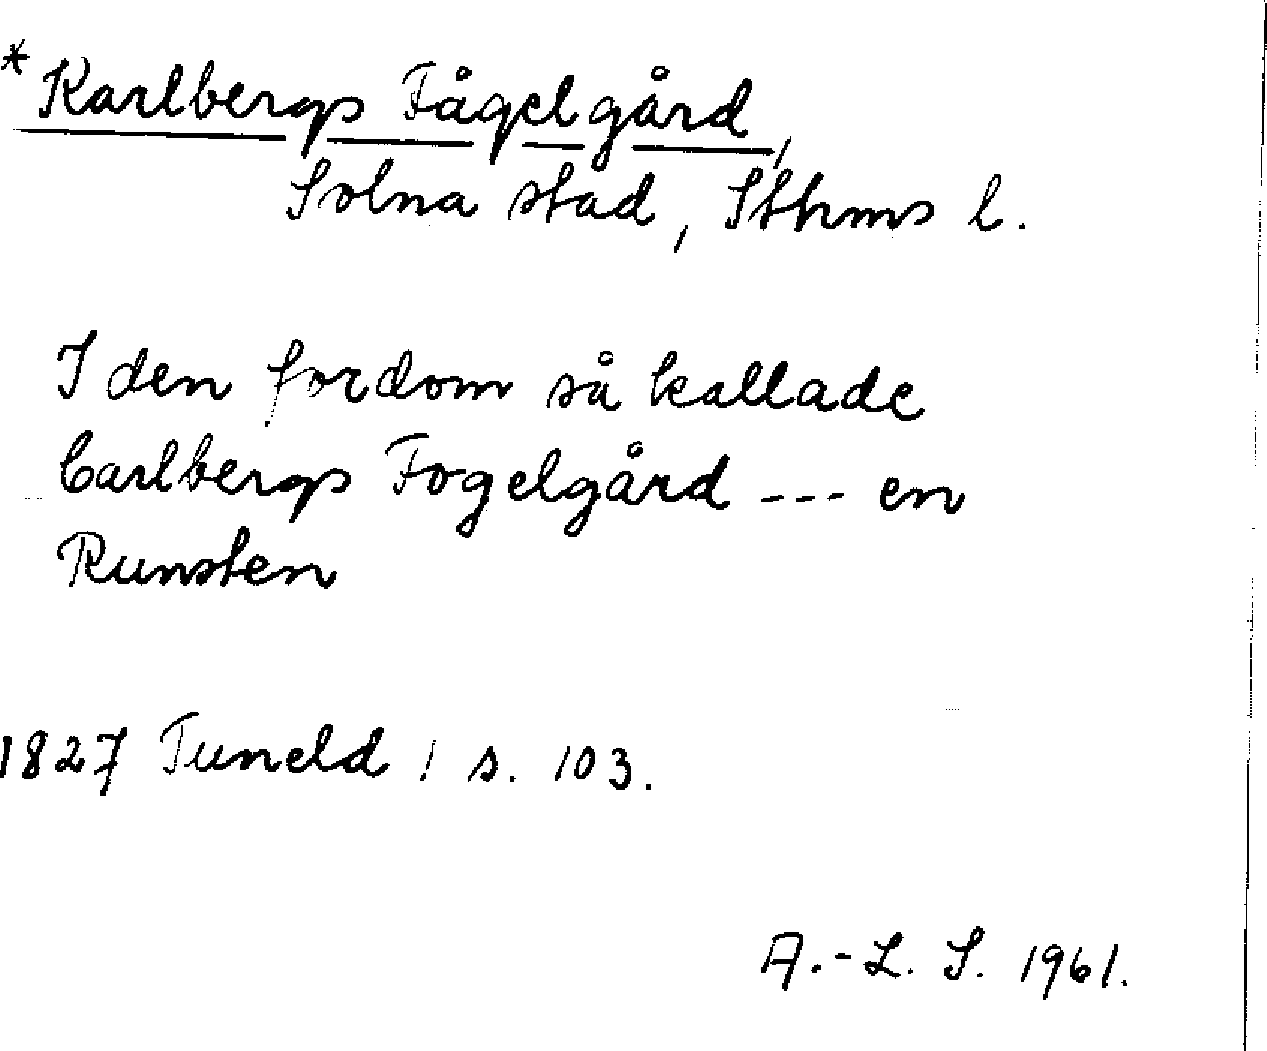 *Karlbergs Fågelgård,
Solna stad, Sthms l.
I den fordom så kallade
Carlbergs Fogelgård --- en
Runsten
1827 Tuneld 1 s. 103.
A.-L. S. 1961.